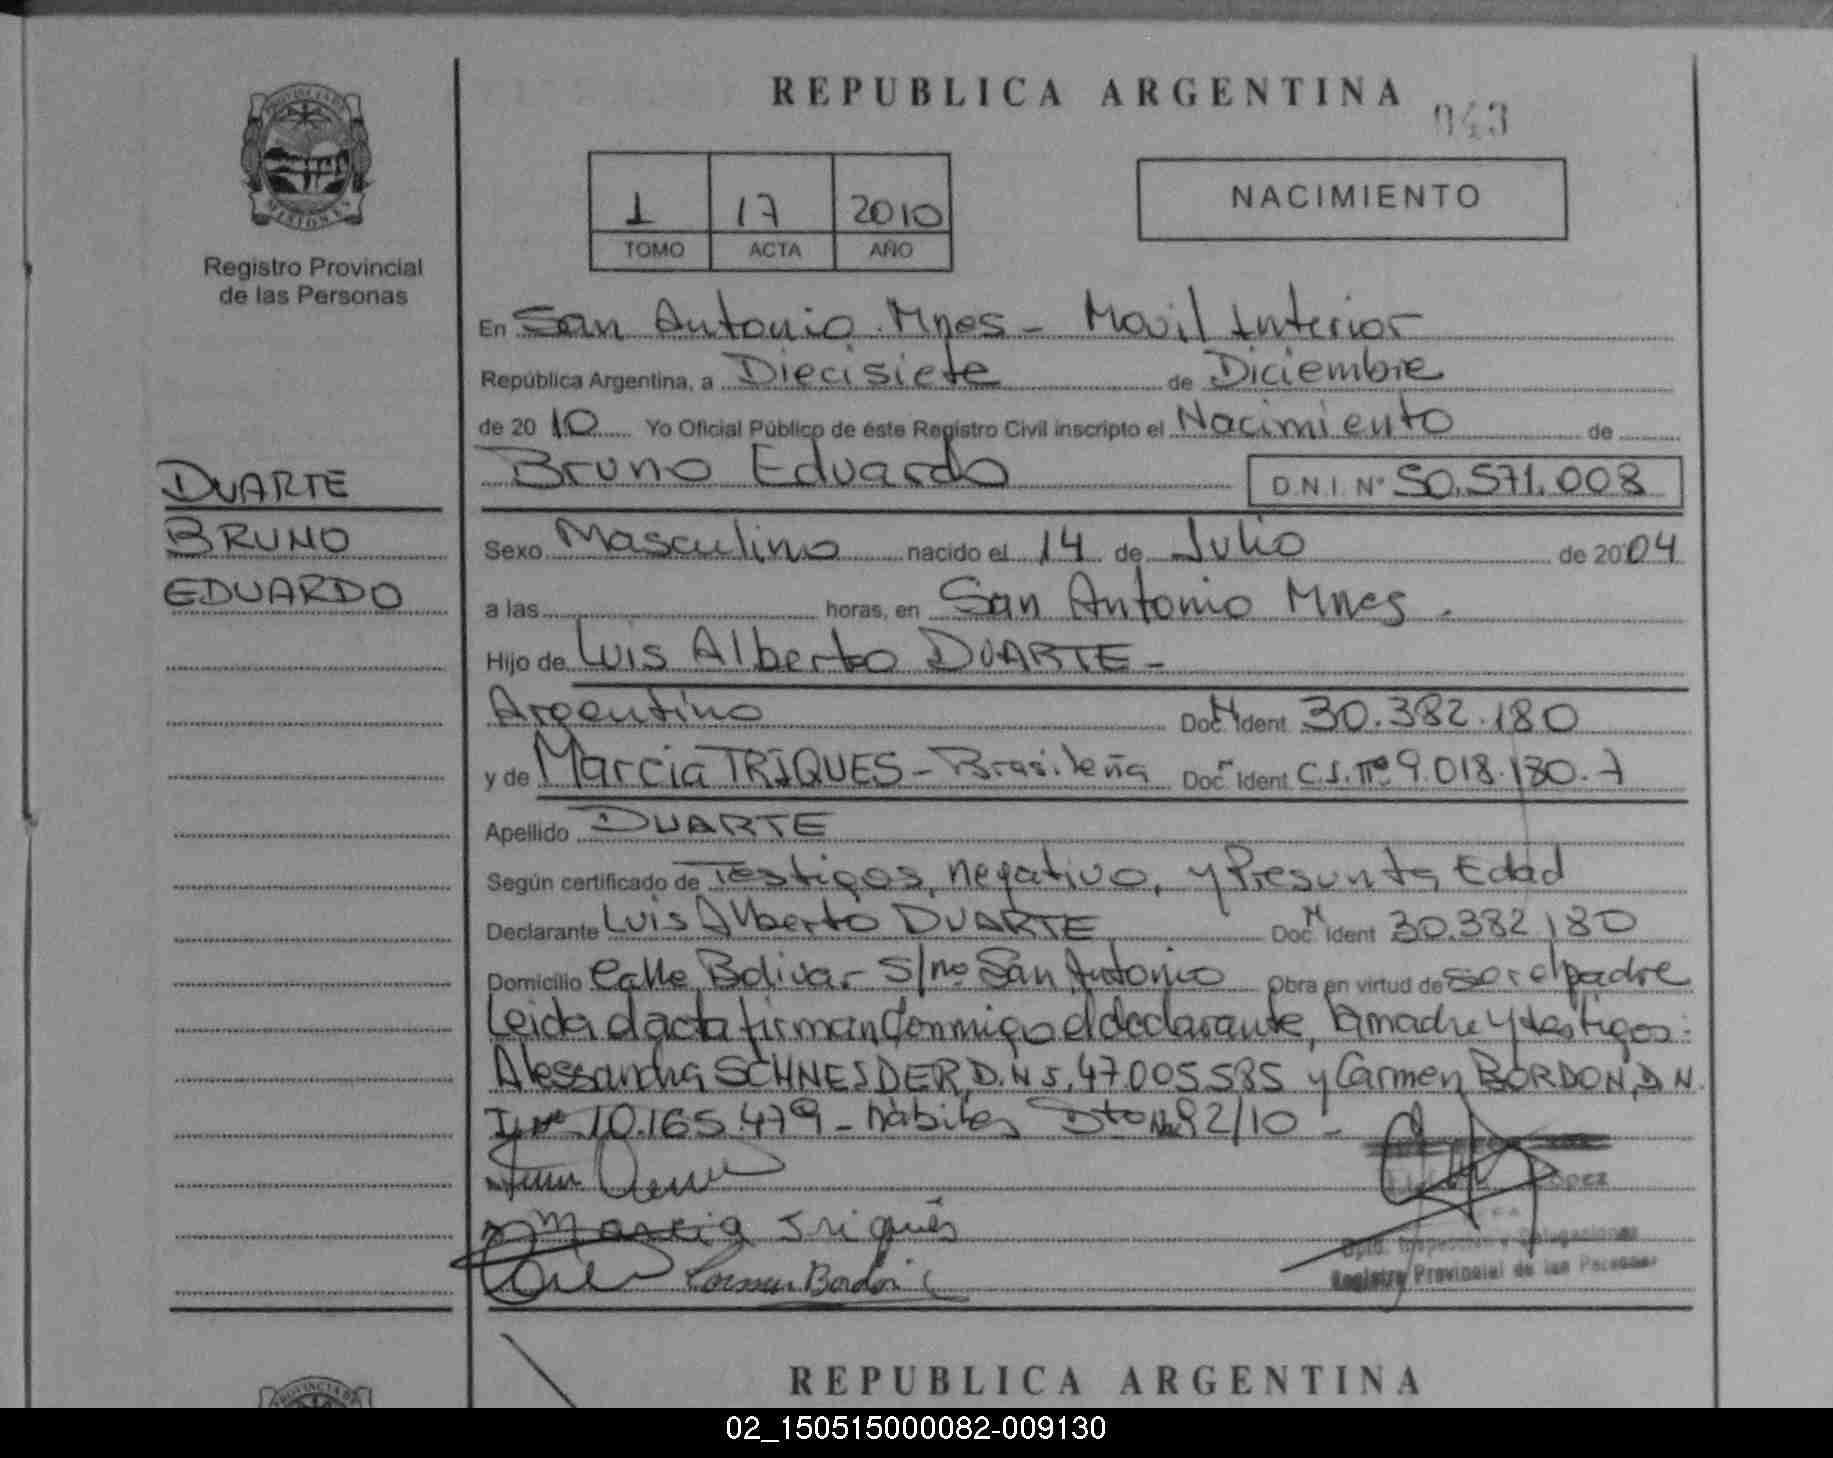 REPUBLICA ARGENTINA
043
PROVINCIA DE
MISIONES
Registro Provincial
de las Personas
1 17 2010
TOMO ACTA AÑO
NACIMIENTO
En San Antonio Mnes - Movil Interior
República Argentina, a Diecisiete de Diciembre
de 2010 Yo Oficial Público de éste Registro Civil inscripto el Nacimiento de
Bruno Eduardo D.N.I. N° 50.571.008
DUARTE
BRUNO
EDUARDO
Sexo Masculino nacido el 14 de Julio de 2004
a las horas, en San Antonio Mnes.
Hijo de Luis Alberto DUARTE -
Argentino Doc N Ident 30.382.180
y de Marcia TRIQUES - Brasileña Doc N Ident C.I. nº 9.018.130-7
Apellido DUARTE
Según certificado de Testigos, negativo, y Presunta Edad
Declarante Luis Alberto DUARTE Doc N Ident 30.382.180
Domicilio Calle Bolivar S/nº San Antonio Obra en virtud de ser el padre
Leida el acta firman Conmigo el declarante, la madre y testigos:
Alessandra SCHNEIDER, D.N.I. 47005585 y Carmen BORDON, D.N.
I. nº 10.165.479 - hábiles Dto Nac 92/10 -
Marcia Triques
Carmen Bordon
López
Dpto. Inspección y Delegaciones
Registro Provincial de las Personas
REPUBLICA ARGENTINA
PROVINCIA DE
02_150515000082-009130